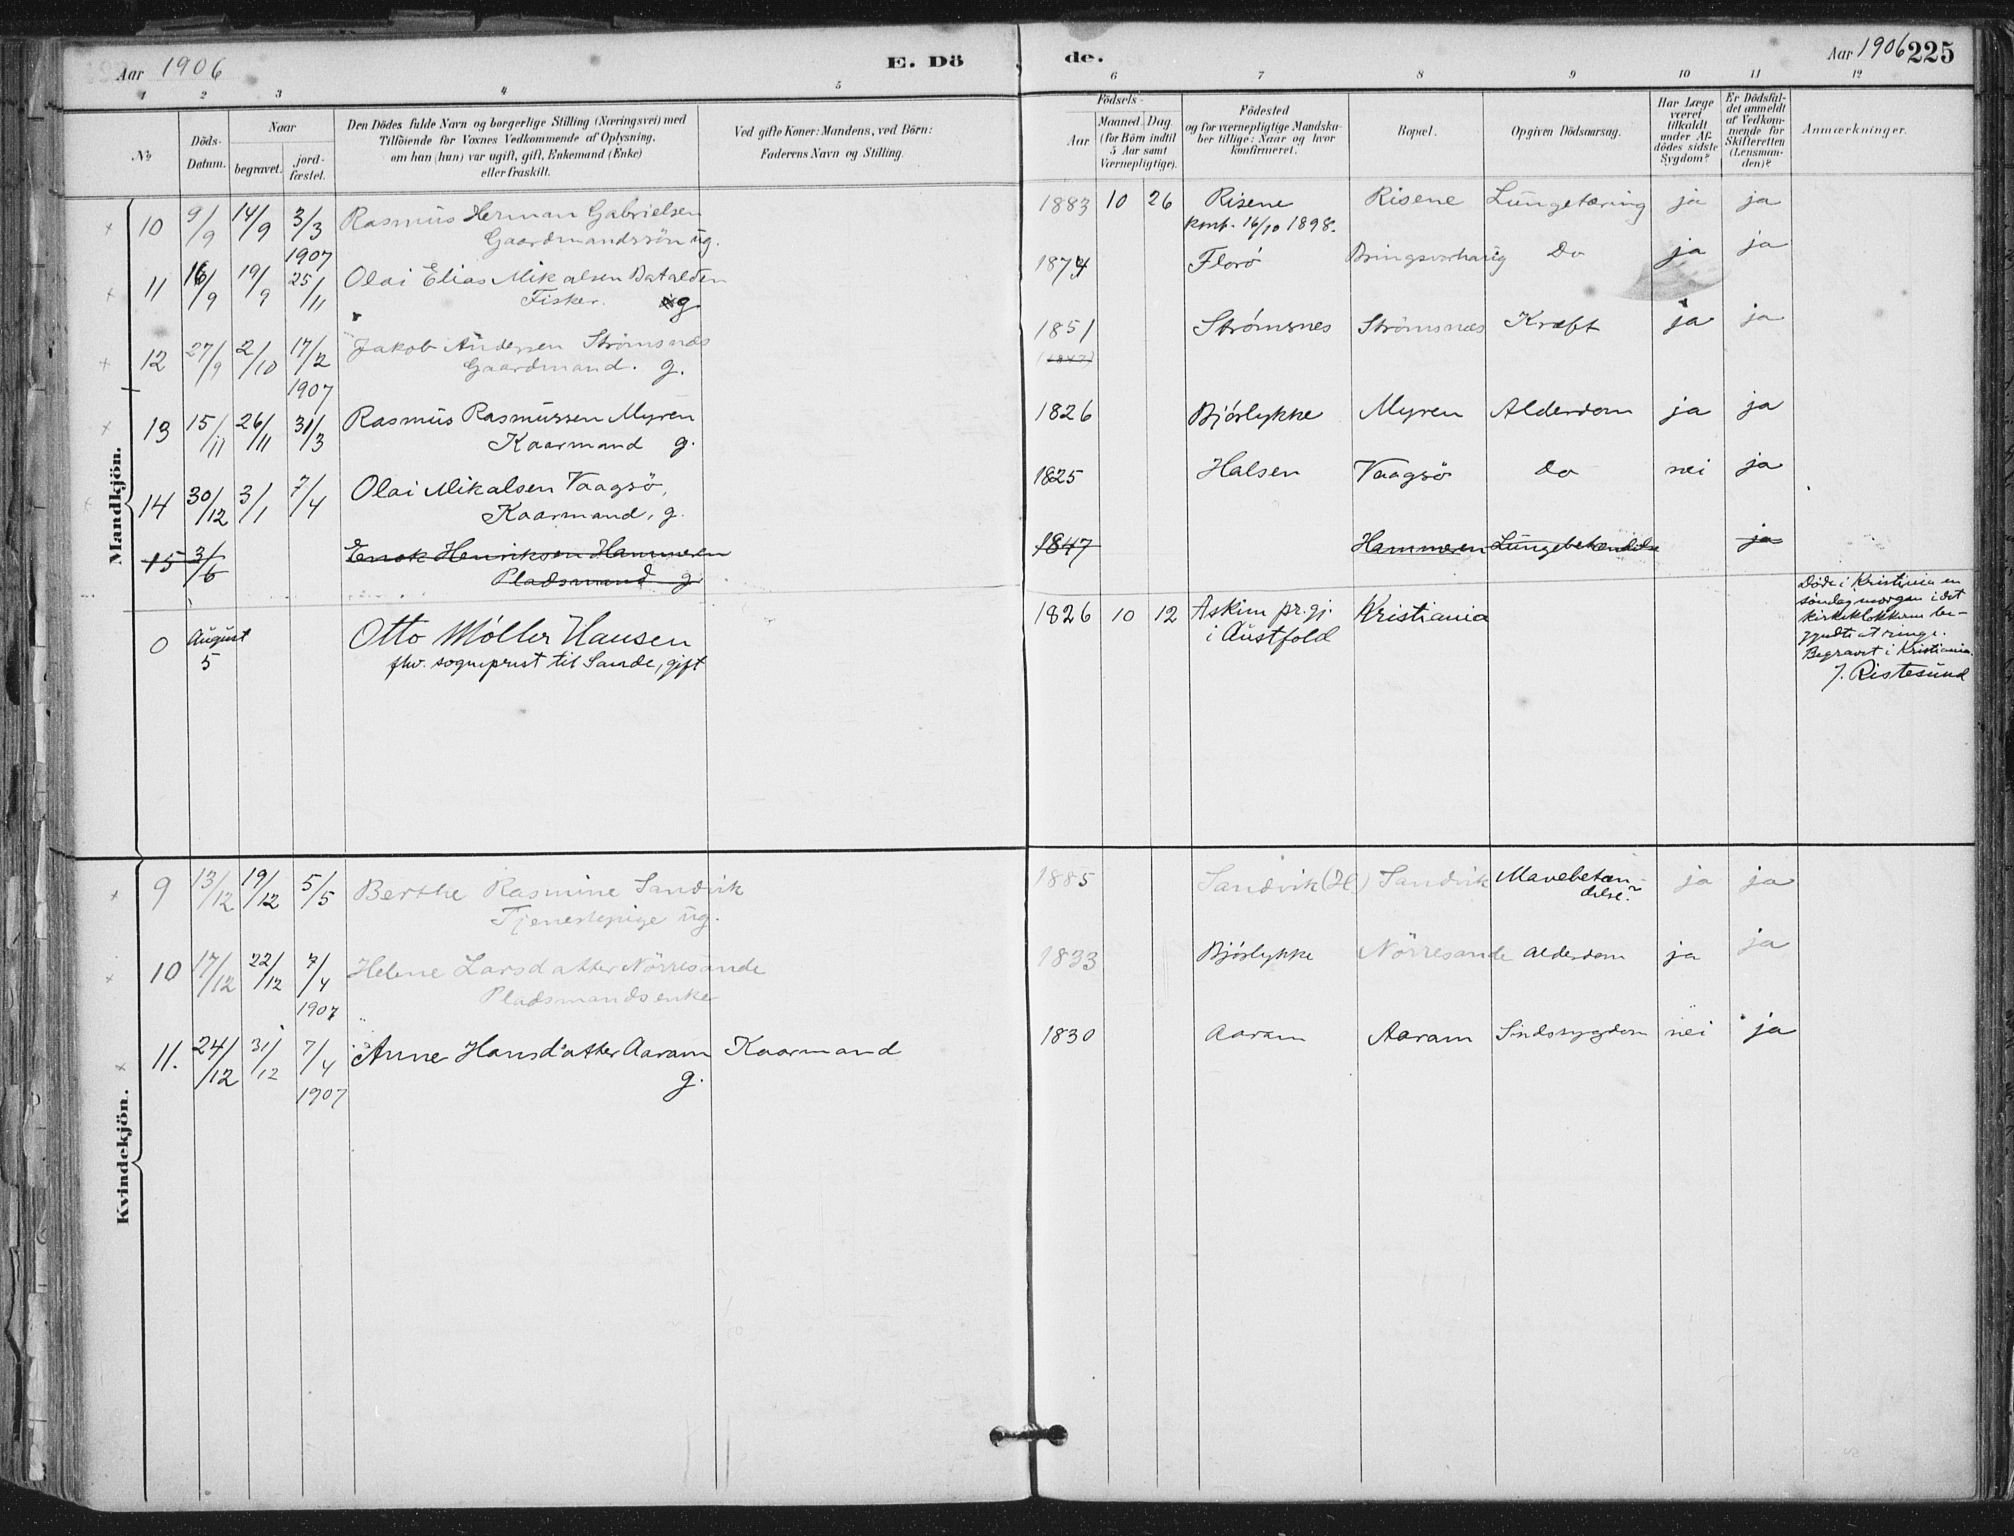 Aar 1906 E. Dö de. Aar 1906 225
1 2 3 4 5 6 7 8 9 10 11 12
No Döds-Datum. Naar begravet. jord-fæstet.
Den Dödes fulde Navn og borgerlige Stilling (Næringsvei) med
Tilföiende for Voxnes Vedkommende af Oplysning,
om han (hun) var ugift, gift, Enkemand (Enke)
eller fraskilt.
Ved gifte Koner: Mandens, ved Börn:
Faderens Navn og Stilling.
Födsels-
Aar. Maaned. Dag.
(for Börn indtil
5 Aar samt
Værnepligtige).
Födested
og for værnepligtige Mandska-
ber tillige: Naar og hvor
konfirmeret.
Bopæl.
Opgiven Dödsaarsag.
Har Læge
været
tilkaldt
under Af-
dödes sidste
Sygdom?
Er Dödsfal-
det anmeldt
af Vedkom-
mende for
Skifteretten
(Lensman-
den)?
Anmærkninger.
Mandkjön.
10 9/9 14/9 3/3 1907 Rasmus Herman Gabrielsen 1883 10 26 Risene Risene Lungetæring ja ja
Gaardmandssön ug. konf. 16/10 1898.
11 16/9 19/9 25/11 Olai Elias Mikalsen Batalden 1874 Florö Do ja ja
Fisker. g
12 27/9 2/10 17/2 1907 Jakob Andersen Strömsnes 1851 Strömsnes Strömsnæs Kræft ja ja
Gaardmand. g. (1847)
13 15/11 26/11 31/3 Rasmus Rasmussen Myren 1826 Bjórlykke Myren Alderdom ja ja
Kaarmand g.
14 30/12 3/1 7/4 Olai Mikalsen Vaagsö, 1825 Halsen Vaagsö do nei ja
Kaarmand, g.
15 3/6 Enok Henriksen Hammeren 1847 Hammeren Lungebetændelse ja
Pladsmand g
0 August 5 Otto Møller Hansen 1826 10 12 Askim pr.gj. Kristiania
fhv. sogneprest til Sande, gift i Austfold
Døde i Kristiania en
søndag morgen i det
kirkeklokkerne be-
gyndte at ringe.
Begravet i Kristiania.
J. Ristesund
Kvindekjön.
9 13/12 19/12 5/5 Berthe Rasmine Sandvik 1885 Sandvik (H) Sandvik Mavebetæn-
delse? ja ja
Tjenestepige ug.
10 17/12 22/12 7/4 1907 Helene Larsdatter Nörresande 1833 Bjórlykke Nörresande alderdom ja ja
Pladsmandsenke
11. 24/12 31/12 7/4 1907 Anne Hansdatter Aaram Kaarmand 1830 Aaram Aaram Sindssygdom nei ja
g.